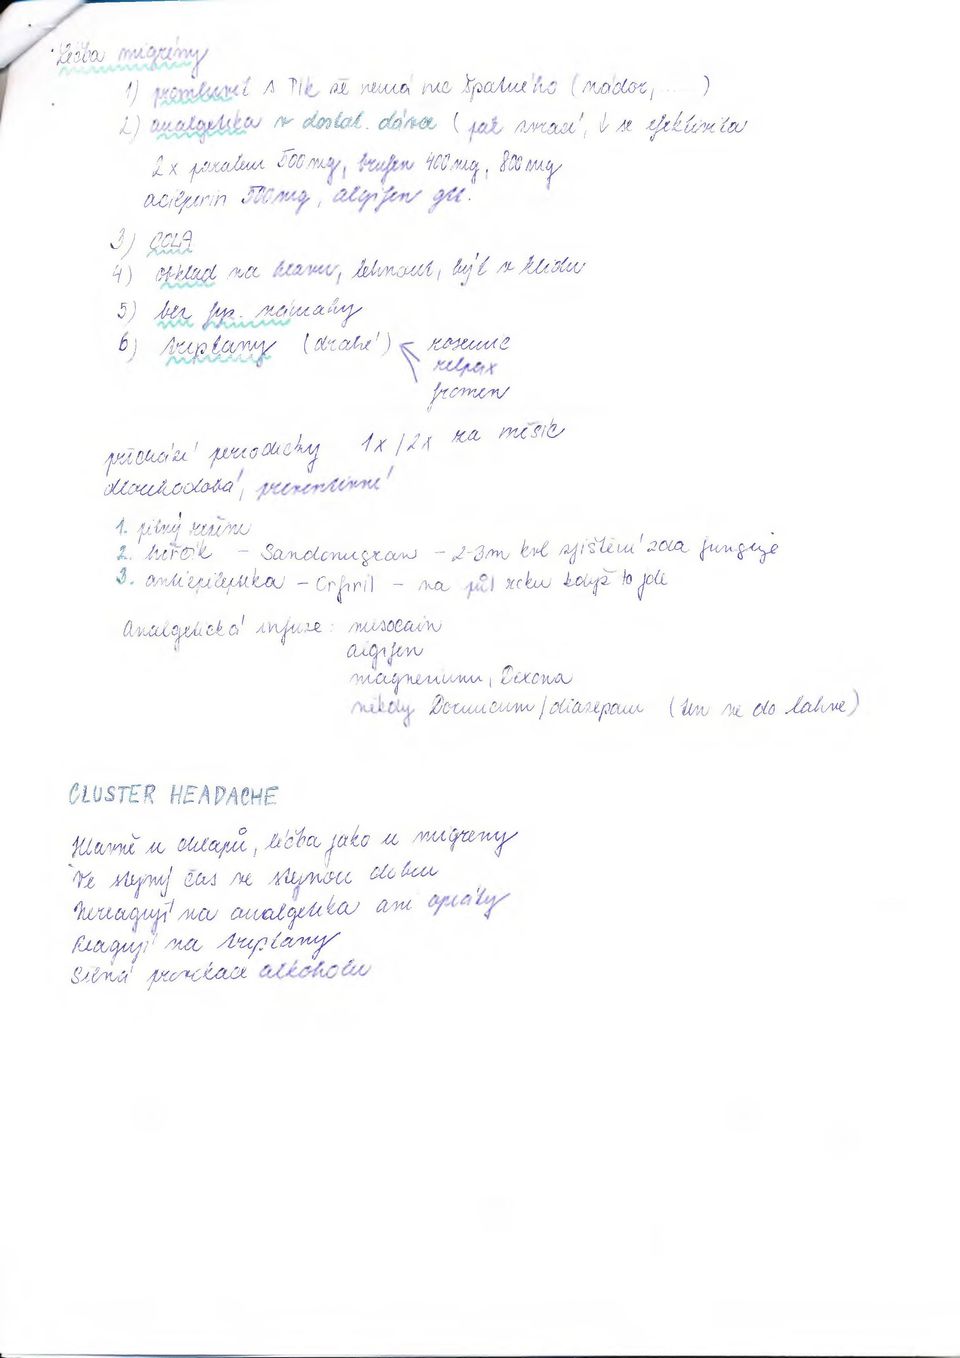 Léčba migrény
1) promluvit s Tik že nemá nic špatného (nádor, ..... )
2) analgetika v dostat. dávce (pak zvrací, ↓ se efektivita)
2x paralen 500mg, brufen 400mg, 800mg
acilpirin 500mg, algifen gtt.
3) COLA
4) obklad na hlavu, lehnout, být v klidu
5) bez fyz. námahy
6) triptany (drahé) rosemig
relpax
fromen
přichází periodicky 1x/2x za měsíc
dlouhodobá, preventivní
1. pitný režim
2. hořčík - Sandomigran - 2-3m tvl zjištění zda funguje
3. antiepileptika - Orfiril - na půl roku když to jde
Analgetická infuze: mesocain
algifen
magnesium, Dexona
někdy Dormicum/diazepam (ten ne do lahve)
CLUSTER HEADACHE
Hlavně u chlapů, léčba jako u migreny
Ve stejný čas ve stejnou dobu
Nereagují na analgetika ani opiáty
Reagují na triptany
Silná provokace alkoholu